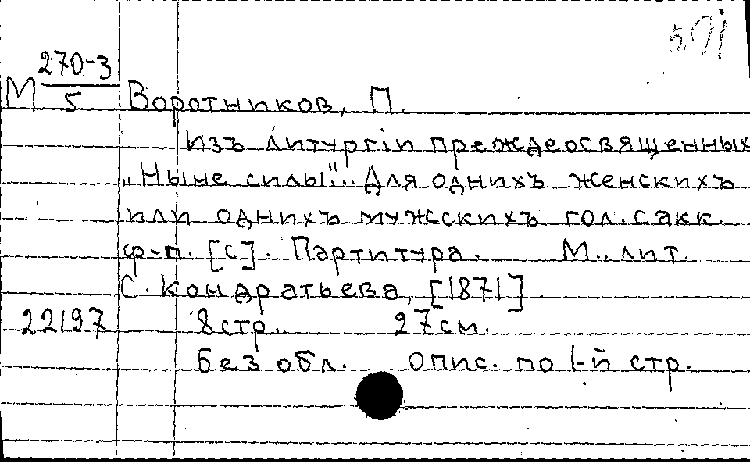 М 270-3/5 Воротников, П.
Изъ литургіи преждеосвященныхъ
„Ныне силы". Для однихъ женскихъ
или однихъ мужскихъ гол. с акк.
ф-п. [С]. Партитура. М., лит.
С. Кондратьева, [1871]
22197 8 стр. 27 см.
Без обл. Опис. по 1-й стр.